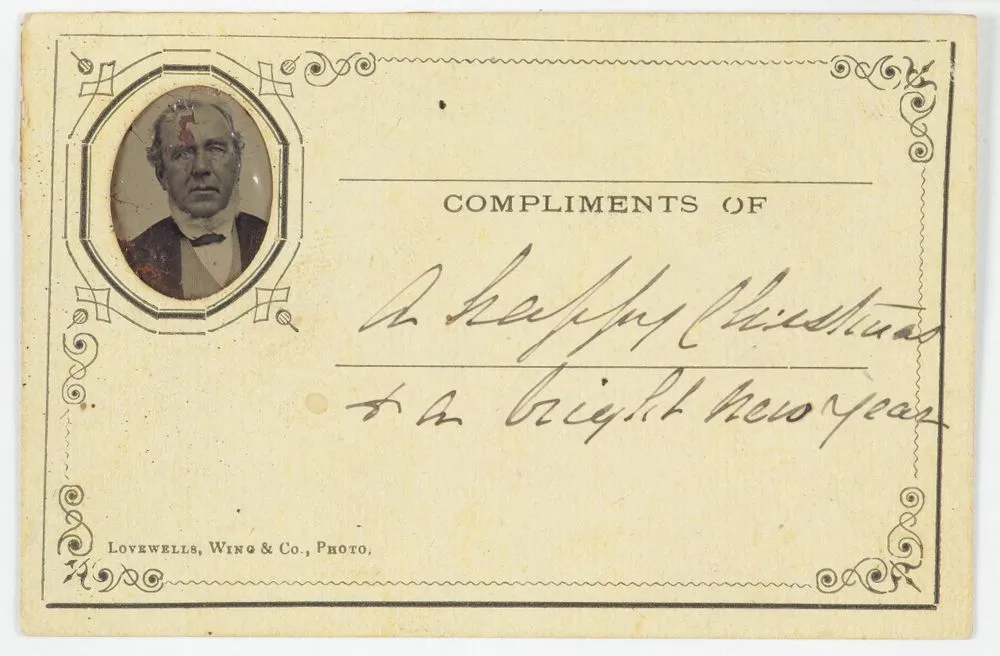 COMPLIMENTS OF
A happy Christmas
& a bright new year
LOVEWELLS, WING & CO., PHOTO,